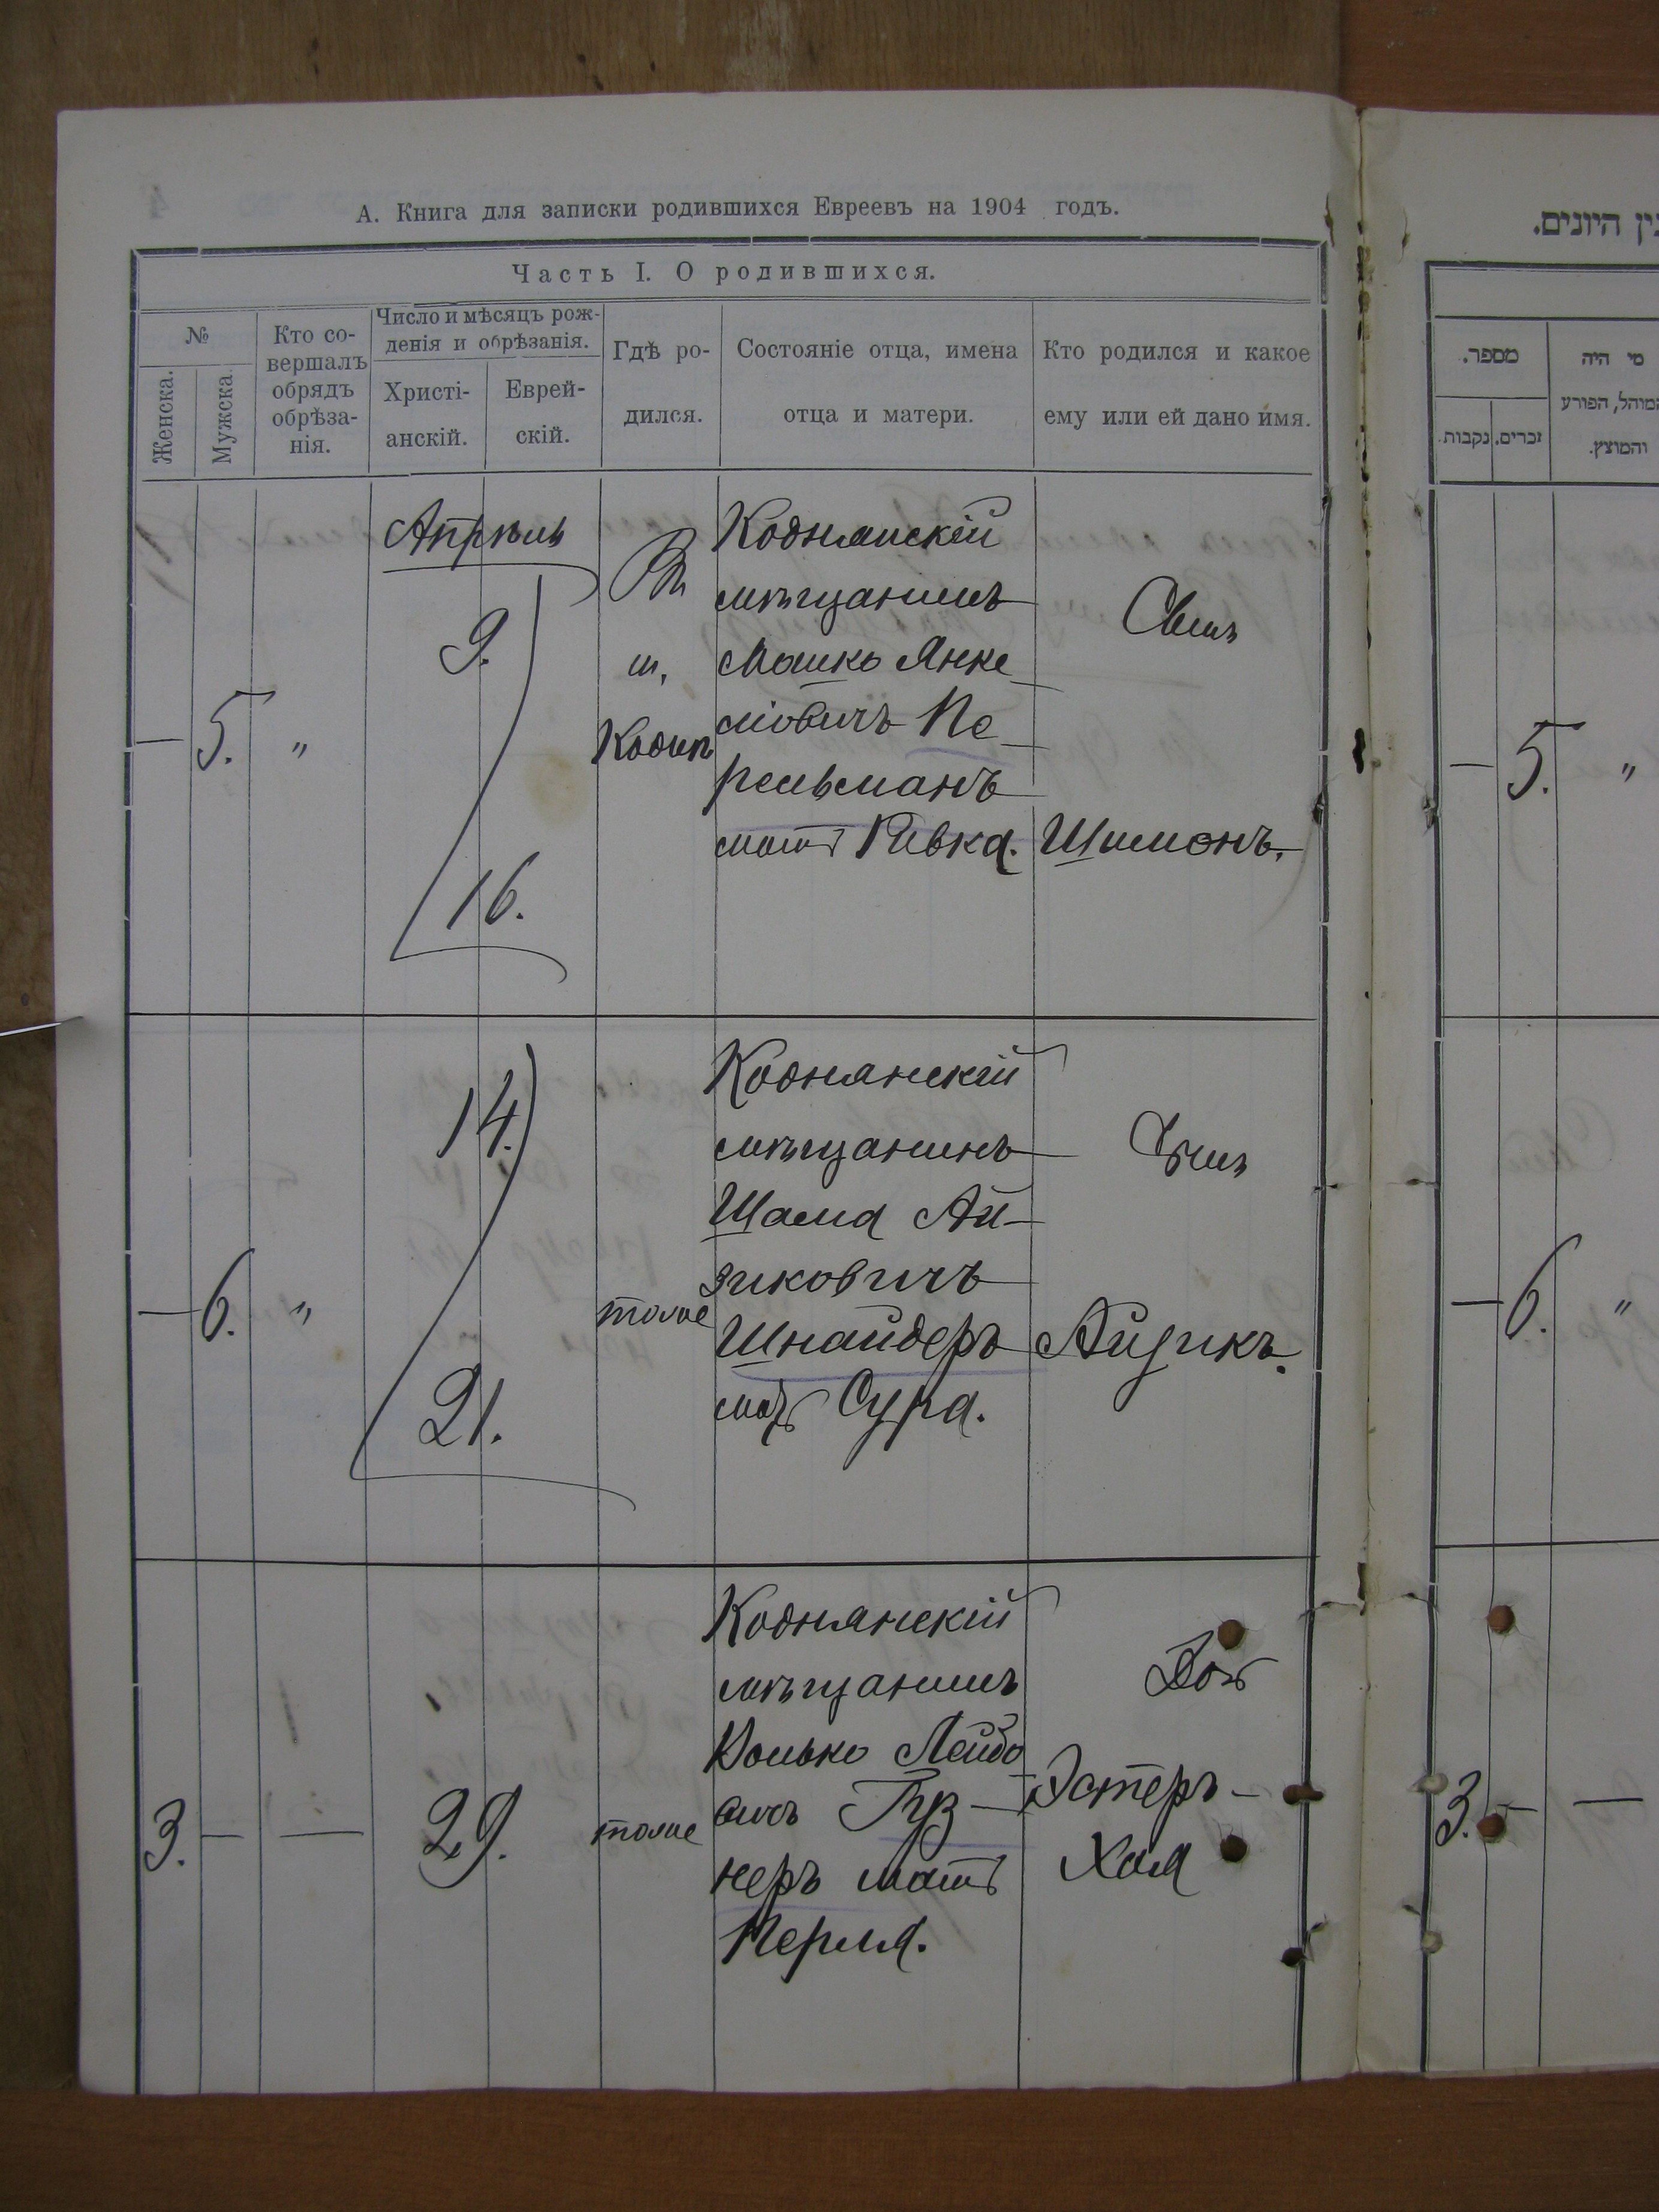 А. Книга для записки родившихся Евреевъ на 1904 годъ.
Часть I. О родившихся.
№
Женска.
Мужска.
Кто со-
вершалъ
обрядъ
обрѣза-
нія.
Число и мѣсяцъ рож-
денія и обрѣзанія.
Христі-
анскій.
Еврей-
скій.
Гдѣ ро-
дился.
Состояніе отца, имена
отца и матери.
Кто родился и какое
ему или ей дано имя.
— 5. "
Апрѣль
9.
16.
Въ
м.
Коднянскій
мѣщанинъ
Мошко Янке
ліовичъ Пе
рельманъ
мать Ривка.
Сынъ
Шимонъ.
— 6. "
14.
21.
тоже
Коднянскій
мѣщанинъ
Шама Ай-
зиковичъ
Шнайдеръ
мать Сура.
Сынъ
Айзикъ.
3. — —
29.
тоже
Коднянскій
мѣщанинъ
Лейбо
вичъ
неръ мать
Перля.
Дочь
Эстеръ-
Хая
ין היונים.
מספר.
זכרים.
נקבות.
מי היה
המוהל, הפורע
והמוצץ.
— 5. "
— 6. "
3. — —